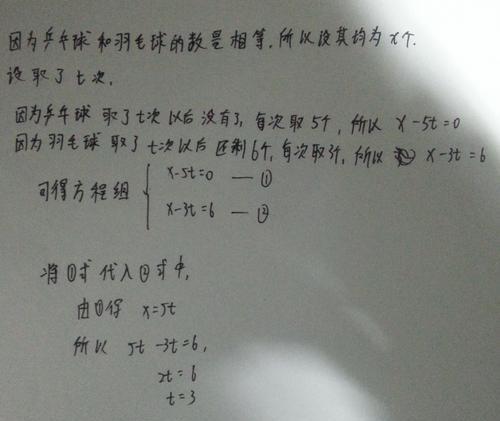 因为乒乓球和羽毛球的数量相等,所以设其均为x个.
设取了t次,
因为乒乓球 取了t次以后没有了,每次取5个,所以 x-5t=0
因为羽毛球 取了t次以后 还剩6个,每次取3个,所以 x-3t=6
可得方程组 { x-5t=0 — ①
x-3t=6 — ②
将①式代入②式中,
由①得 x=5t
所以 5t-3t=6,
2t=6
t=3